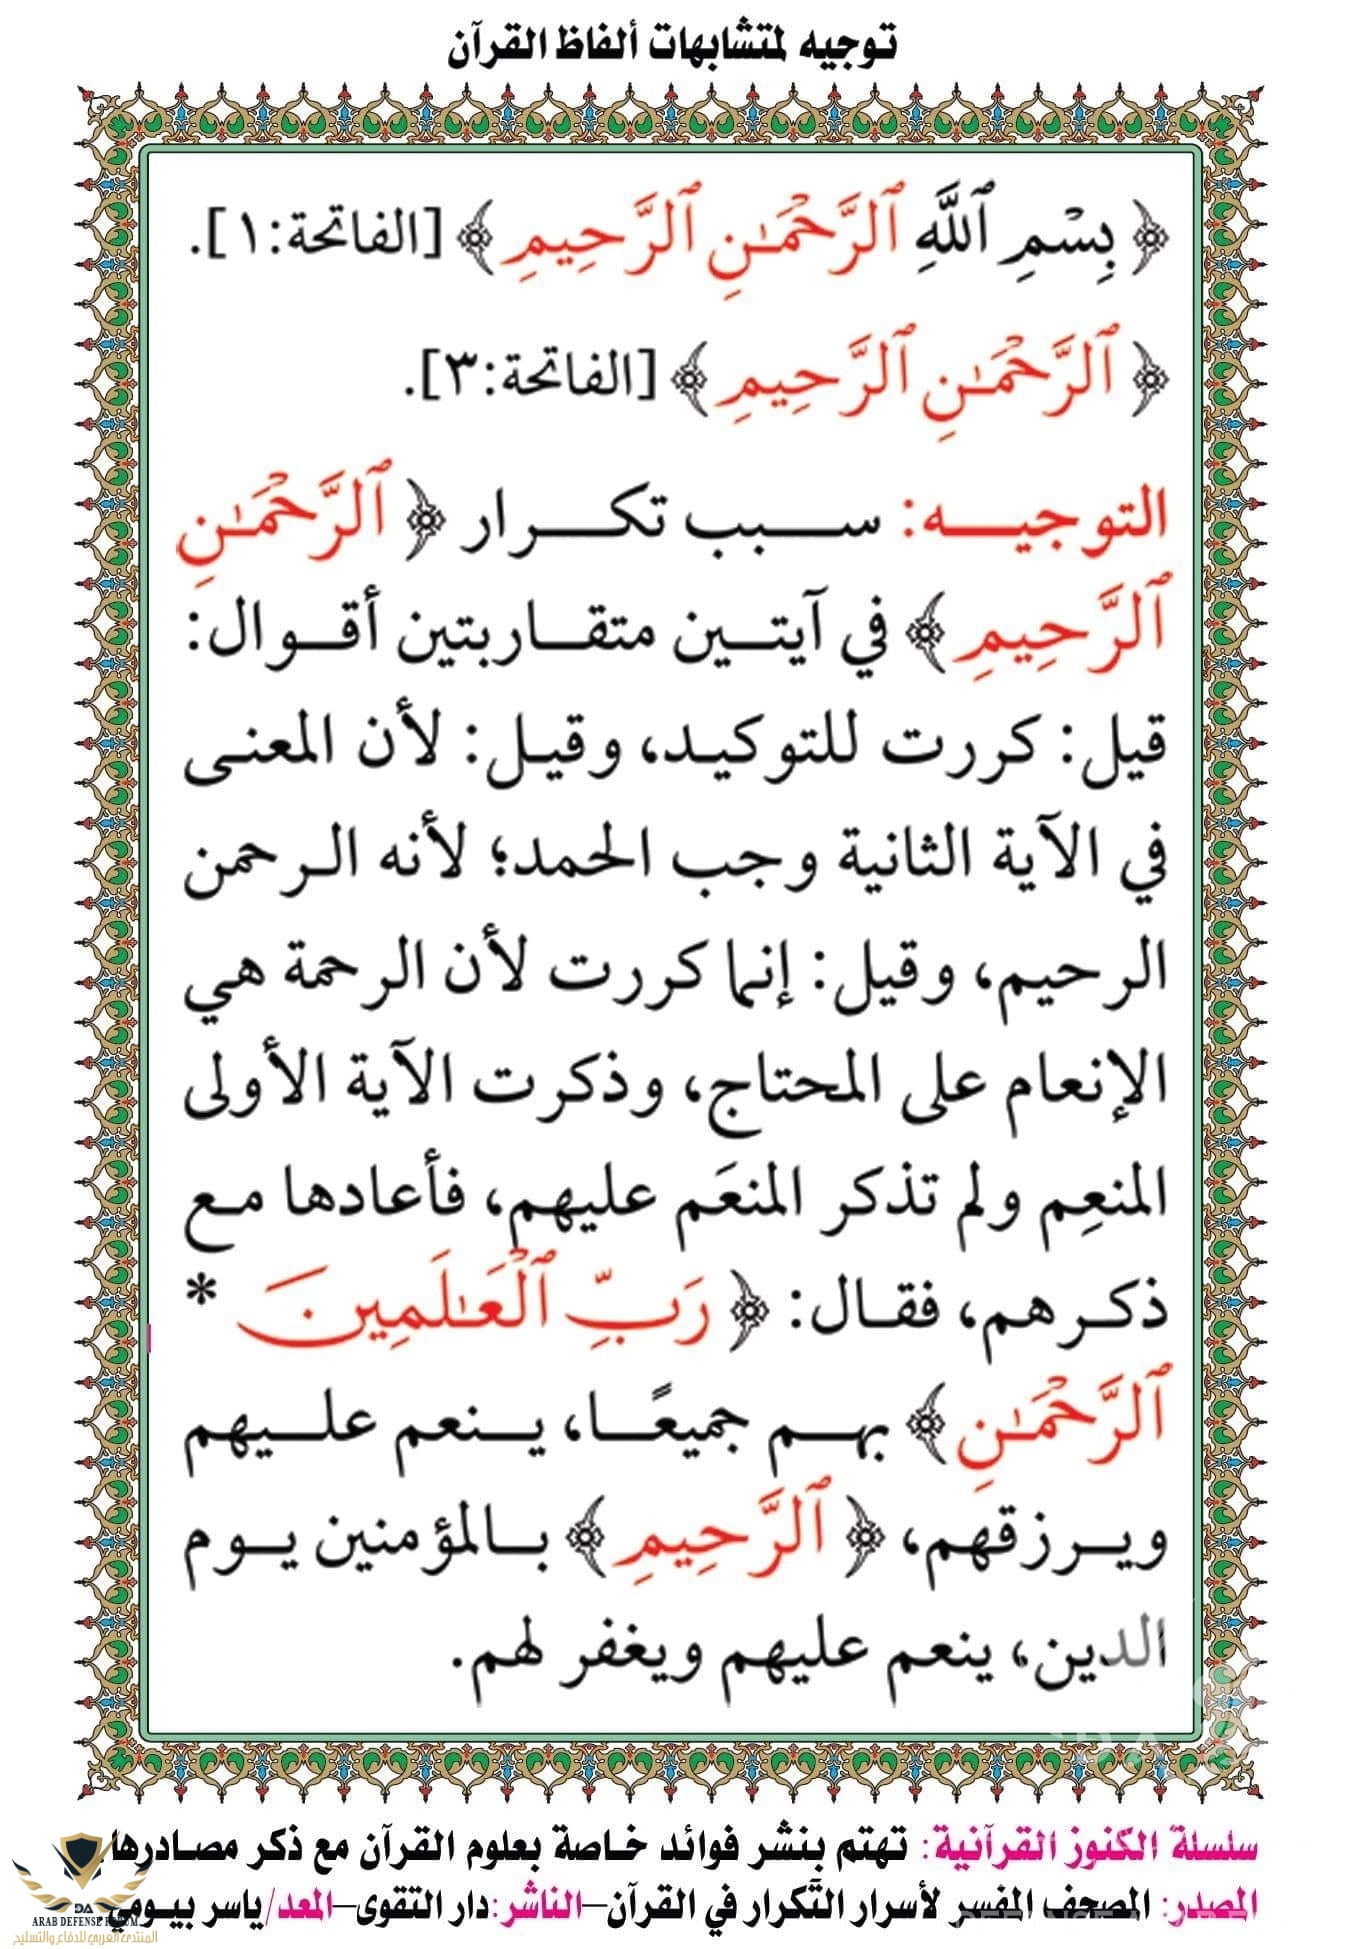 توجيه لمتشابهات ألفاظ القرآن
﴿ بِسْمِ ٱللَّهِ ٱلرَّحْمَٰنِ ٱلرَّحِيمِ ﴾ [الفاتحة:١].
﴿ ٱلرَّحْمَٰنِ ٱلرَّحِيمِ ﴾ [الفاتحة:٣].
التوجيه: سبب تكرار ﴿ ٱلرَّحْمَٰنِ
ٱلرَّحِيمِ ﴾ في آيتين متقاربتين أقوال:
قيل: كررت للتوكيد، وقيل: لأن المعنى
في الآية الثانية وجب الحمد؛ لأنه الرحمن
الرحيم، وقيل: إنما كررت لأن الرحمة هي
الإنعام على المحتاج، وذكرت الآية الأولى
المنعِم ولم تذكر المنعَم عليهم، فأعادها مع
ذكرهم، فقال: ﴿ رَبِّ ٱلْعَٰلَمِينَ *
ٱلرَّحْمَٰنِ ﴾ بهم جميعًا، ينعم عليهم
ويرزقهم، ﴿ ٱلرَّحِيمِ ﴾ بالمؤمنين يوم
الدين، ينعم عليهم ويغفر لهم.
سلسلة الكنوز القرآنية: تهتم بنشر فوائد خاصة بعلوم القرآن مع ذكر مصادرها
المصدر: المصحف المفسر لأسرار التَّكرار في القرآن–الناشر:دار التقوى–المعد/ياسر بيومي
DA
ARAB DEFENSE FORUM
المنتدى العربي للدفاع والتسليح